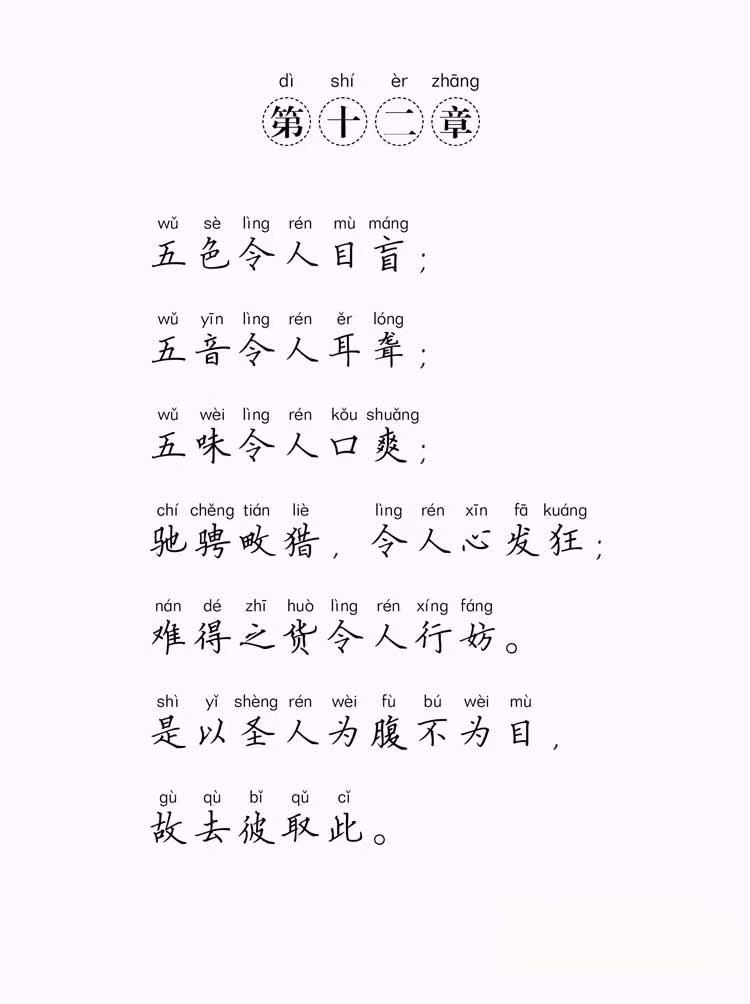 dì shí èr zhāng
第十二章
wǔ sè lìng rén mù máng
五色令人目盲；
wǔ yīn lìng rén ěr lóng
五音令人耳聋；
wǔ wèi lìng rén kǒu shuǎng
五味令人口爽；
chí chěng tián liè lìng rén xīn fā kuáng
驰骋畋猎，令人心发狂；
nán dé zhī huò lìng rén xíng fáng
难得之货令人行妨。
shì yǐ shèng rén wèi fù bú wèi mù
是以圣人为腹不为目，
gù qù bǐ qǔ cǐ
故去彼取此。